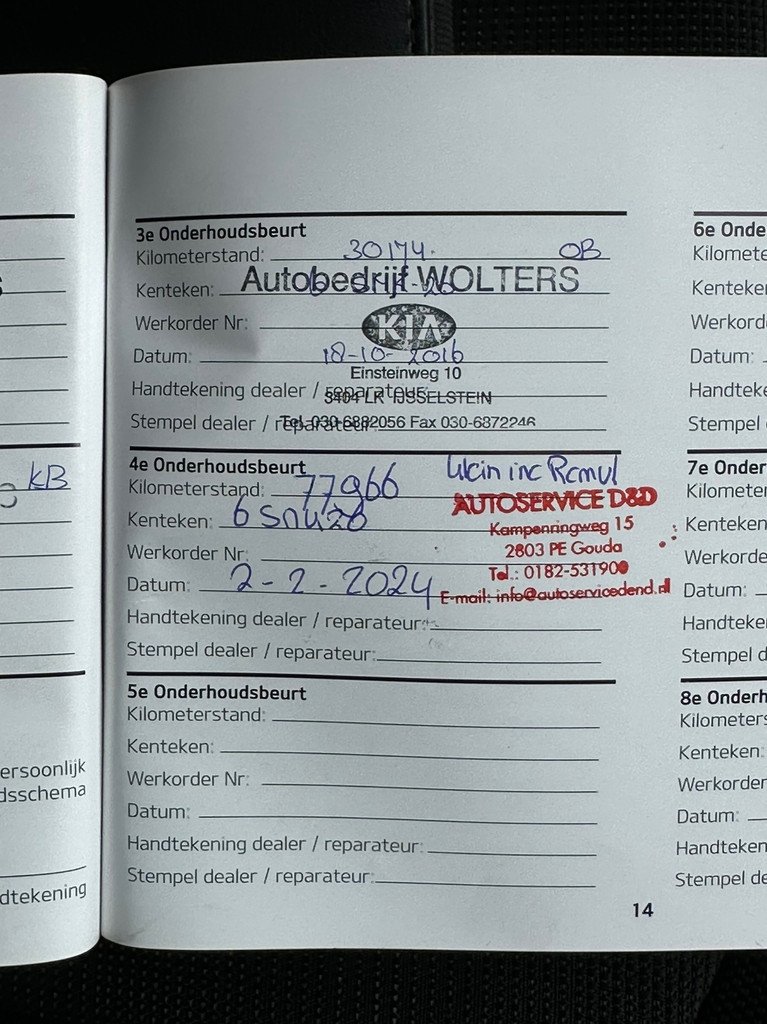 KB
ersoonlijk
dsschema
dtekening
3e Onderhoudsbeurt
Kilometerstand: 30174. OB
Kenteken:
Autobedrijf WOLTERS
Werkorder Nr:
KIA
Datum: 18-10-2016
Einsteinweg 10
Handtekening dealer / reparateur:
3404 LR IJSSELSTEIN
Stempel dealer / reparateur:
Tel. 030-6882056 Fax 030-6872246
4e Onderhoudsbeurt
Kilometerstand: 77966
Kenteken:
Werkorder Nr:
Datum: 2-2-2024
Handtekening dealer / reparateur:
Stempel dealer / reparateur:
AUTOSERVICE D&D
Kampenringweg 15
2803 PE Gouda
Tel.: 0182-531900
E-mail: info@autoservicedend.nl
5e Onderhoudsbeurt
Kilometerstand:
Kenteken:
Werkorder Nr:
Datum:
Handtekening dealer / reparateur:
Stempel dealer / reparateur:
14
6e Onde
Kilomete
Kenteke
Werkord
Datum:
Handtek
Stempel
7e Onder
Kilometer
Kenteken
Werkorde
Datum:
Handteke
Stempel d
8e Onderh
Kilometers
Kenteken:
Werkorder
Datum:
Handteken
Stempel de